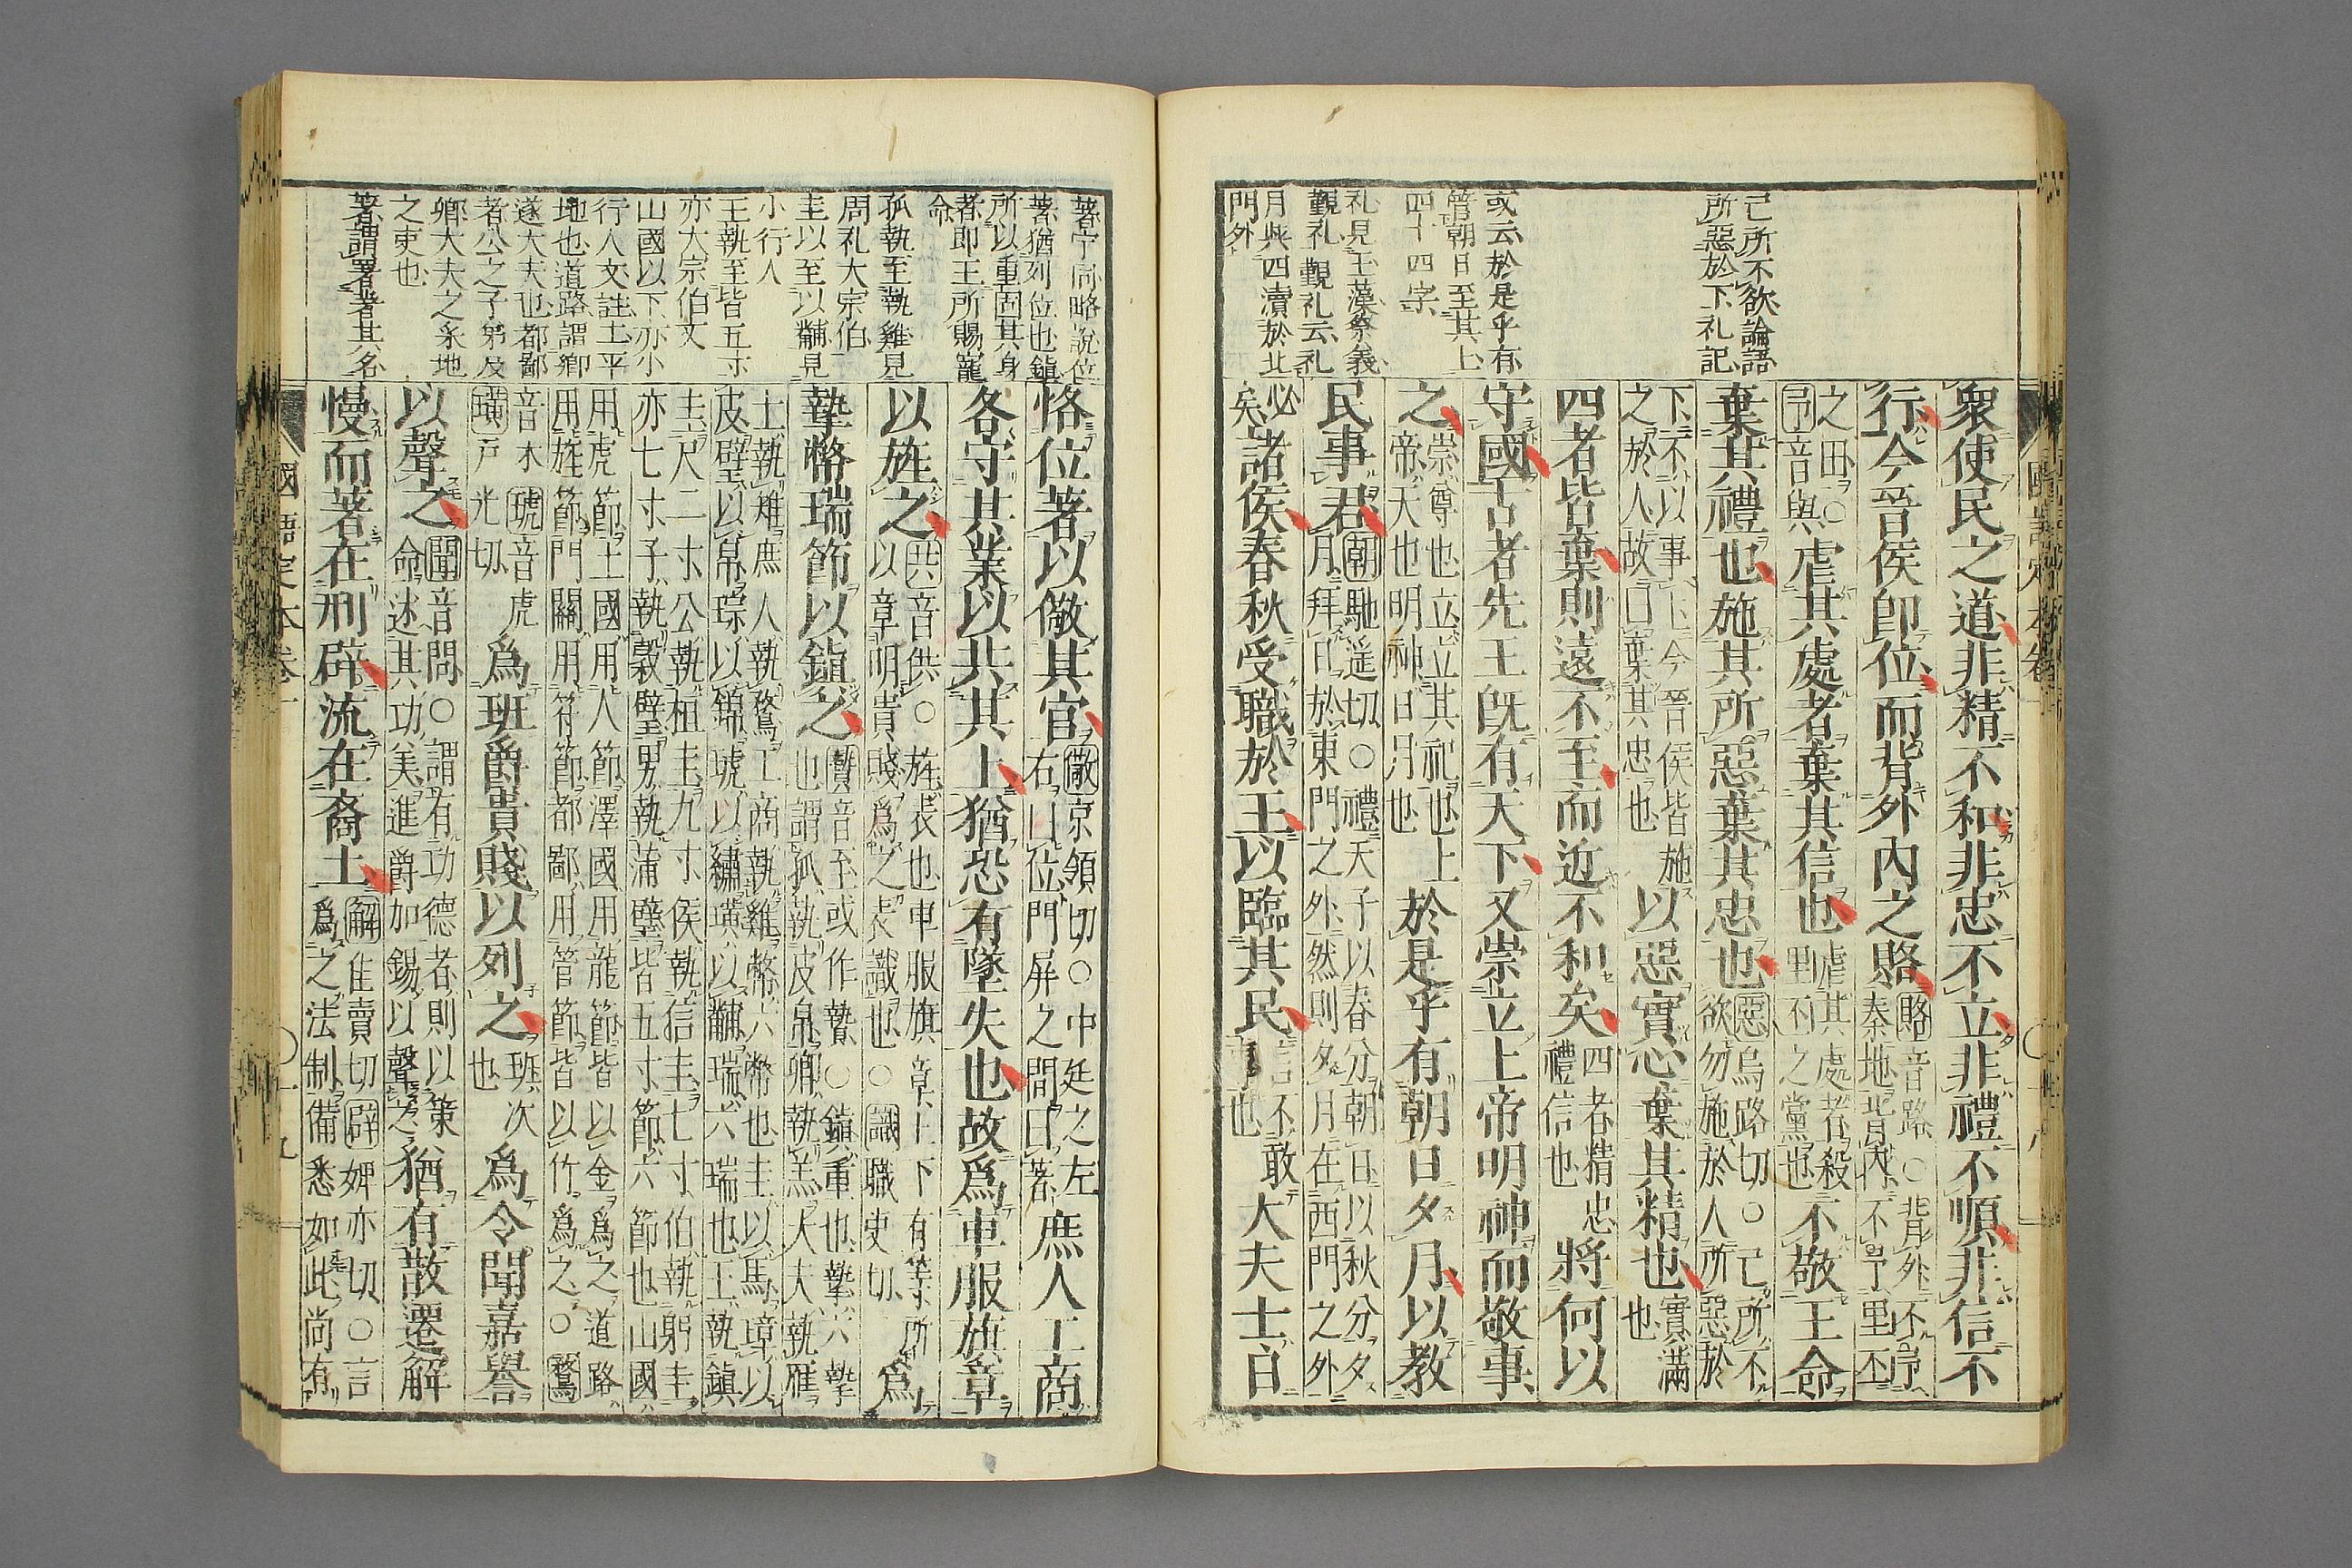 己所不欲論語
所惡於下礼記
或云於是乎有
管朝日至其上
四十四字
礼見玉藻祭義
覲礼覲礼云礼
月與四瀆於北
門外
衆使民之道非精不和非忠不立非禮不順非信不
行今晉侯卽位而背外內之賂
賂音路○背外不予
秦地背內不予里丕
之田○
弓音與
虐其處者棄其信也
虐其處者殺
里丕之黨也
不敬王命
棄其禮也施其所惡棄其忠也
惡烏路切○己所不
欲勿施於人所惡於
下不以事上今晉侯皆施
之於人故曰棄其忠也
以惡實心棄其精也
實滿
也
四者皆棄則遠不至而近不和矣
四者精忠
禮信也
將何以
守國古者先王旣有天下又崇立上帝明神而敬事
之
崇尊也立立其祀也上
帝天也明神日月也
於是乎有朝日夕月以教
民事君
朝馳遥切○禮天子以春分朝日以秋分夕
月拜日於東門之外然則夕月在西門之外
必
矣
諸侯春秋受職於王以臨其民
言不敢
專也
大夫士日
國語定本卷一
著宁同略說位
著猶列位也鎮
所以重固其身
者即王所賜寵
命
孤執至執雞見
周礼大宗伯
圭以至以黼見
小行人
王執至皆五寸
亦大宗伯文
山國以下亦小
行人文註土平
地也道路謂鄉
遂大夫也都鄙
者公之子弟及
鄉大夫之采地
之吏也
著謂署著其名
恪位著以儆其官
儆京領切○中廷之左
右曰位門屏之間曰著
庶人工商
各守其業以共其上猶恐有墜失也故爲車服旗章
以旌之
共音供○旌表也車服旗章上下有等所
以章明貴賤爲之表識也○識職吏切
爲
摯幣瑞節以鎮之
贄音至或作贄○鎮重也摯六摯
也謂孤執皮帛卿執羔大夫執雁
士執雉庶人執鶩工商執雞幣六幣也圭以馬璋以
皮璧以帛琮以錦琥以繡璜以黼瑞六瑞也王執鎮
圭尺二寸公執桓圭九寸侯執信圭七寸伯執躬圭
亦七寸子執穀璧男執蒲璧皆五寸節六節也山國
用虎節土國用人節澤國用龍節皆以金爲之道路
用旌節門關用符節都鄙用管節皆以竹爲之○鶩
音木琥音虎
璜戸光切
爲班爵貴賤以列之
班次
也
爲令聞嘉譽
以聲之
聞音問○謂有功德者則以策
命述其功美進爵加錫以聲之
猶有散遷解
慢而著在刑辟流在裔土
解隹賣切辟婢亦切○言
爲之法制備悉如此尚有
國語定本卷一
十九